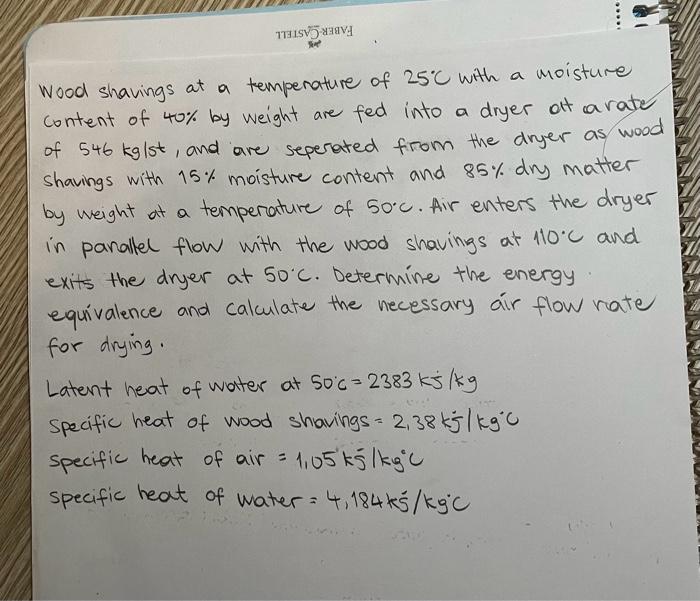 FABER-CASTELL
Wood shavings at a temperature of 25°C with a moisture
content of 40% by weight are fed into a dryer att a rate
of 546 kg/st, and are seperated from the dryer as wood
shavings with 15% moisture content and 85% dry matter
by weight at a temperature of 50°C. Air enters the dryer
in parallel flow with the wood shavings at 110°C and
exits the dryer at 50°C. Determine the energy
equivalence and calculate the necessary air flow rate
for drying.
Latent heat of water at 50°C = 2383 kJ/kg
Specific heat of wood shavings = 2,38 kJ/kg°C
Specific heat of air = 1,05 kJ/kg°C
Specific heat of water = 4,184 kJ/kg°C